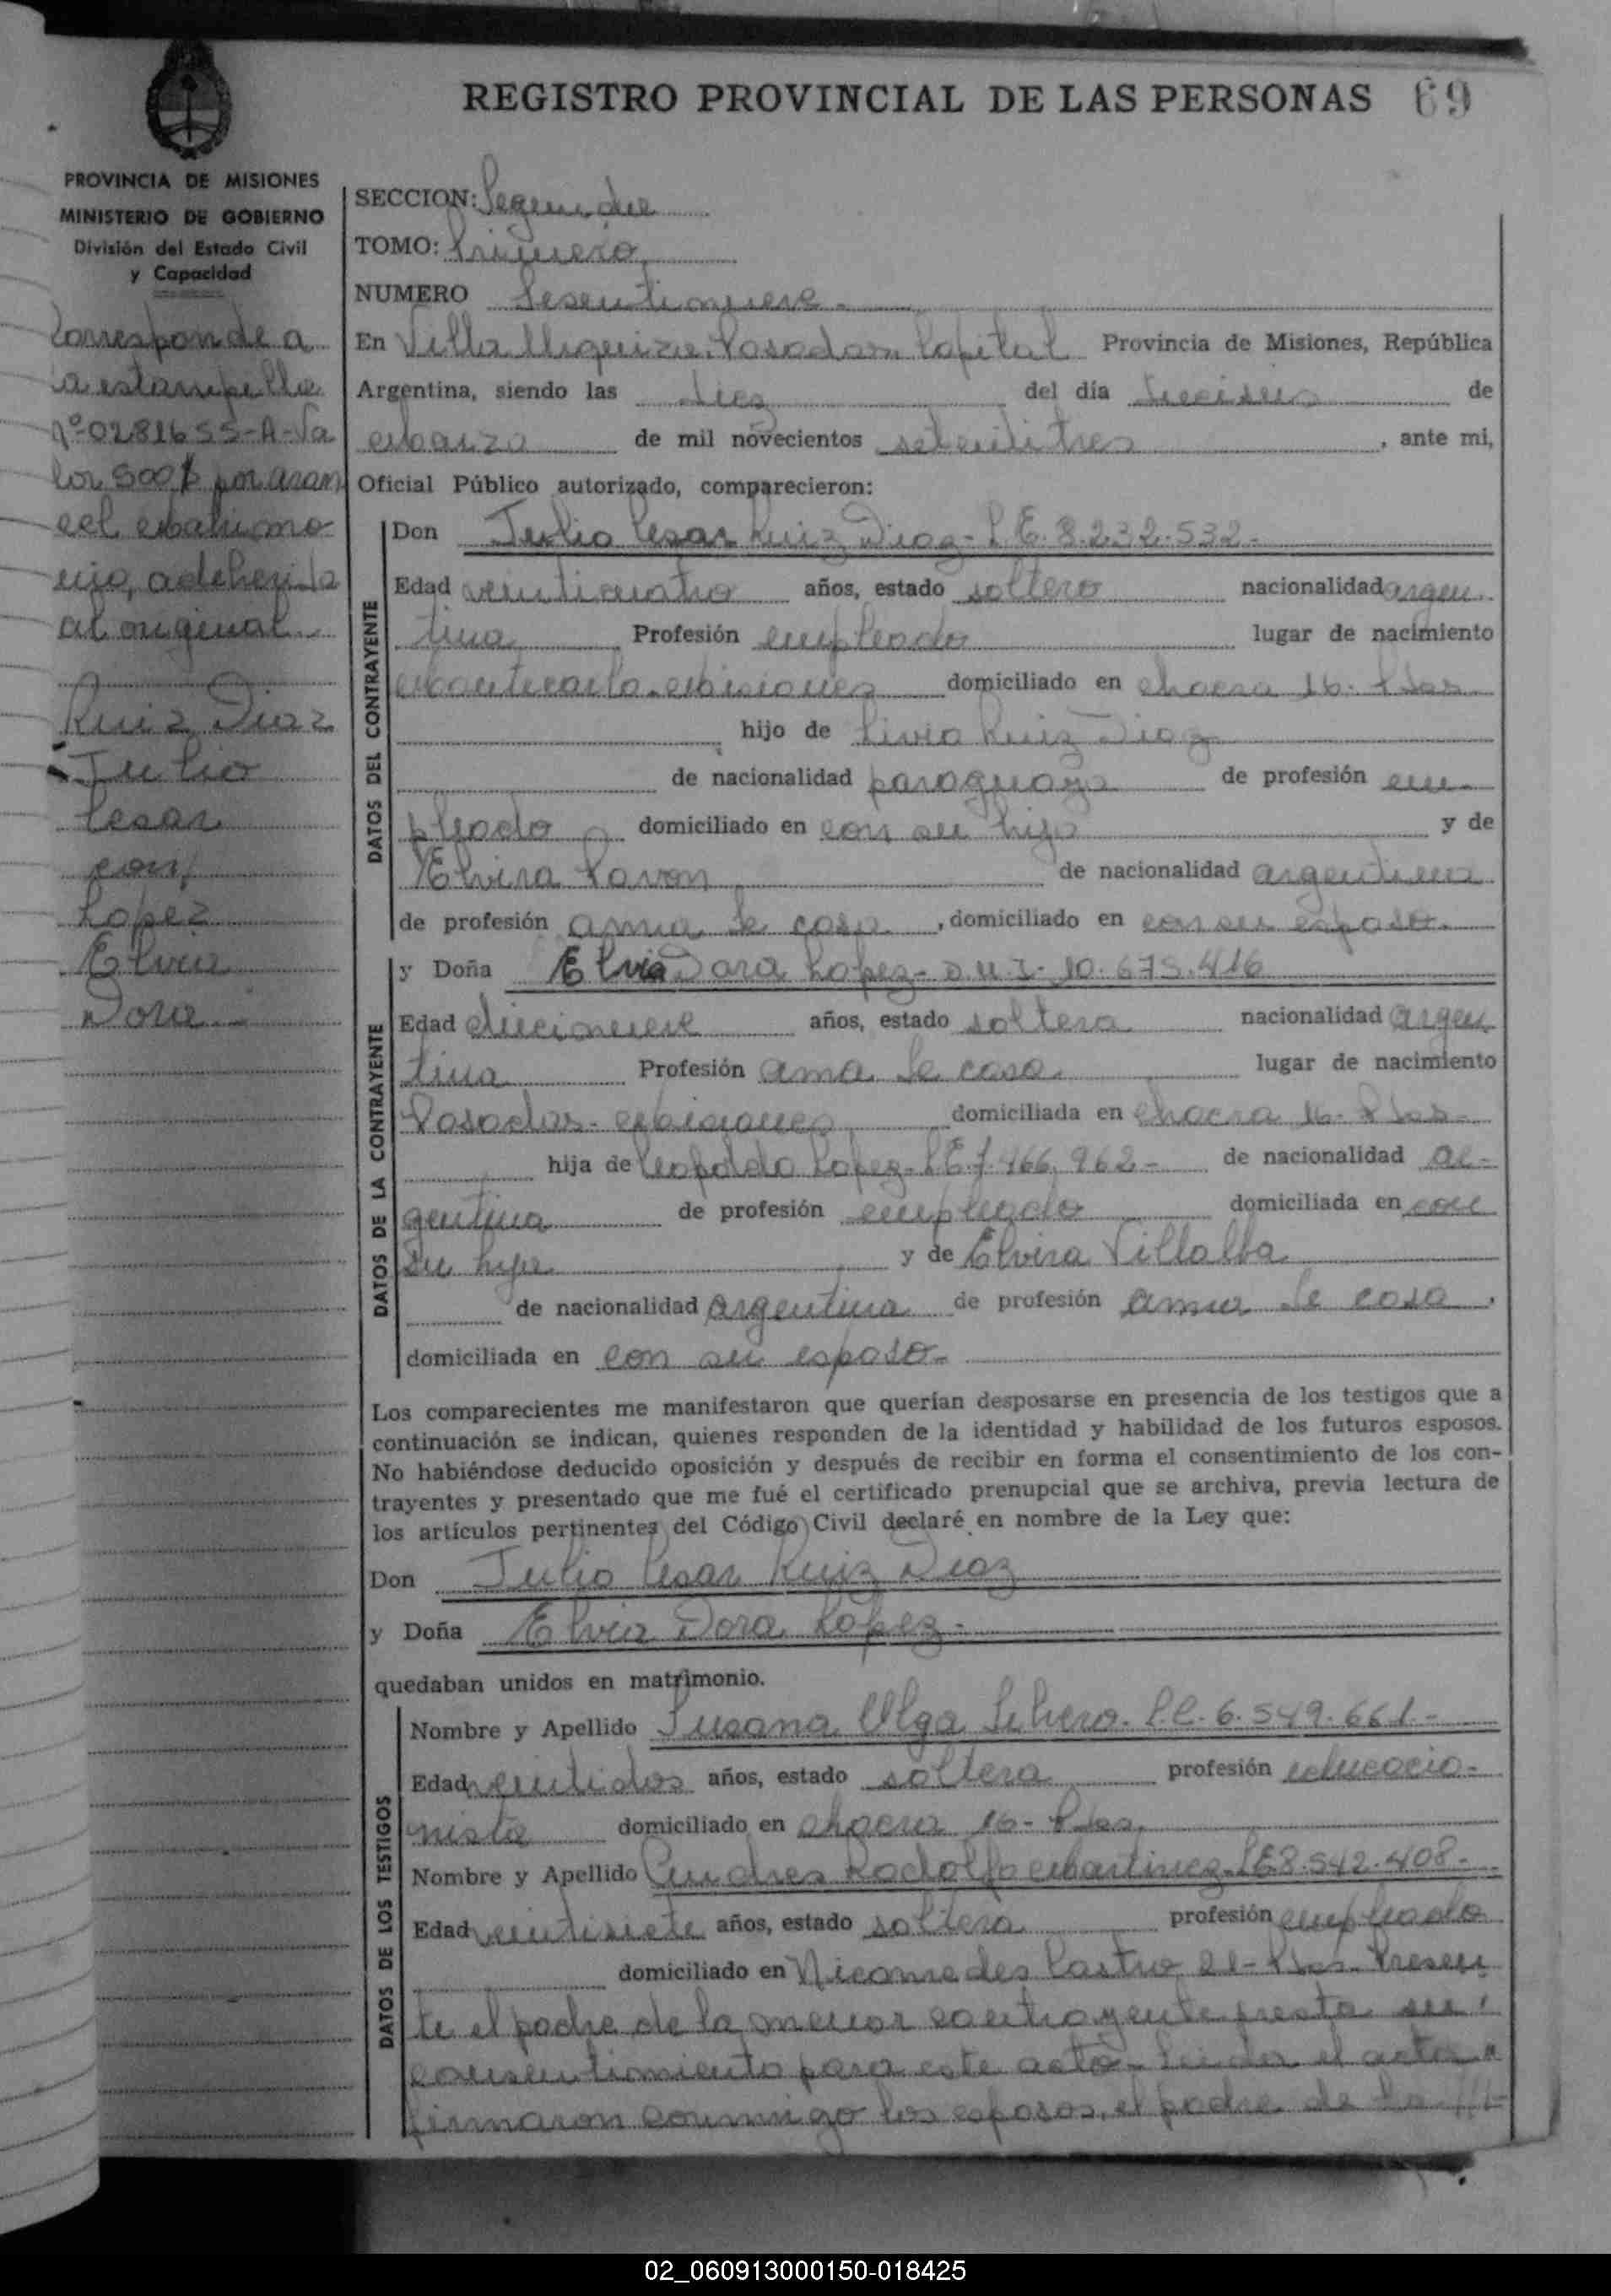 REGISTRO PROVINCIAL DE LAS PERSONAS 69
PROVINCIA DE MISIONES
MINISTERIO DE GOBIERNO
División del Estado Civil
y Capacidad
Corresponde a
la estampilla
nº 0281655-A-Va
lor 500$ por aran
cel matrimo
nio, adeherida
al original.
Ruiz Diaz
Julio
Cesar
con
Lopez
Elvia
Dora
SECCION: Segunda
TOMO: Primero
NUMERO Sesentinueve
En Villa Urquiza. Posadas Capital Provincia de Misiones, República
Argentina, siendo las diez del día dieciseis de
marzo de mil novecientos setentitres, ante mi,
Oficial Público autorizado, comparecieron:
DATOS DEL CONTRAYENTE
Don Julio Cesar Ruiz Diaz - L.E. 8.232.532 -
Edad veinticuatro años, estado soltero nacionalidad argen
tina Profesión empleado lugar de nacimiento
Montecarlo - Misiones domiciliado en chacra 16 - Pdas
hijo de Livio Ruiz Diaz
de nacionalidad paraguaya de profesión em-
pleado domiciliado en con su hijo y de
Elvira Pavon de nacionalidad argentina
de profesión ama de casa, domiciliado en con su esposo.
DATOS DE LA CONTRAYENTE
y Doña Elvia Dora Lopez - D.N.I. 10.675.416
Edad diecinueve años, estado soltera nacionalidad argen
tina Profesión ama de casa lugar de nacimiento
Posadas - Misiones domiciliada en chacra 16 - Pdas -
hija de Leopoldo Lopez - L.E 7.466.962 - de nacionalidad ar-
gentina de profesión empleado domiciliada en con
su hija y de Elvira Villalba
de nacionalidad argentina de profesión ama de casa,
domiciliada en con su esposo -
Los comparecientes me manifestaron que querían desposarse en presencia de los testigos que a
continuación se indican, quienes responden de la identidad y habilidad de los futuros esposos.
No habiéndose deducido oposición y después de recibir en forma el consentimiento de los con-
trayentes y presentado que me fué el certificado prenupcial que se archiva, previa lectura de
los artículos pertinentes del Código Civil declaré en nombre de la Ley que:
Don Julio Cesar Ruiz Diaz
y Doña Elvia Dora Lopez -
quedaban unidos en matrimonio.
DATOS DE LOS TESTIGOS
Nombre y Apellido Susana Olga L.C. 6.549.661 -
Edad veintidos años, estado soltera profesión educacio-
nista domiciliado en chacra 16 - Pdas.
Nombre y Apellido Andres Rodolfo Martinez - L.E 8.542.408 -
Edad veintisiete años, estado soltero profesión empleado
domiciliado en Nicomedes Castro 21 - Pdas. Presen
te el padre de la menor contrayente presta su
consentimiento para este acto - Leida el acta
firmaron conmigo los esposos, el padre de la ///-
02_060913000150-018425